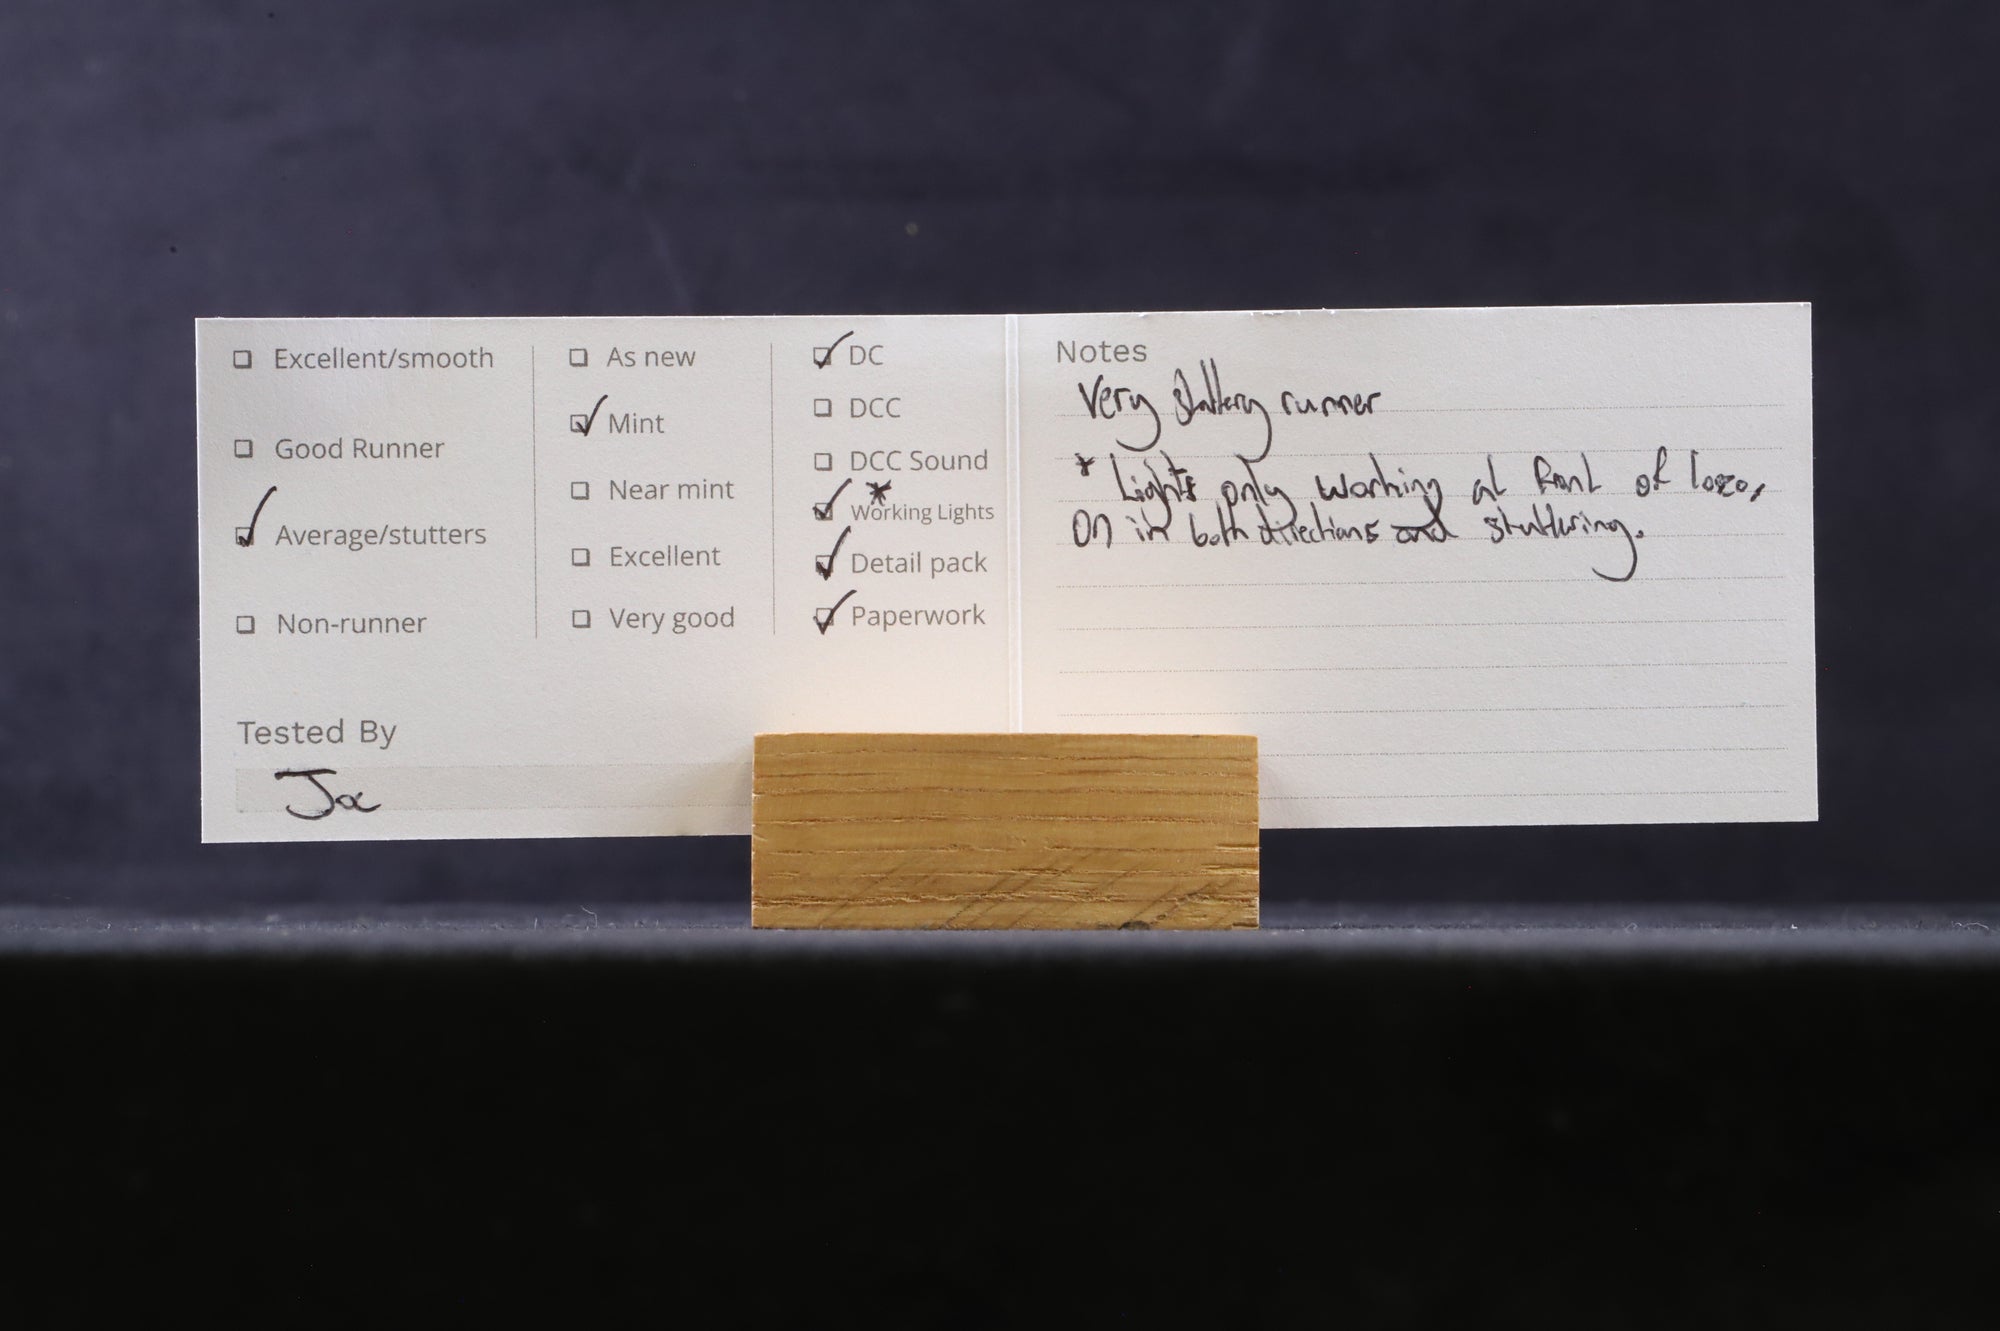 ☐ Excellent/smooth
☐ Good Runner
☑ Average/stutters
☐ Non-runner
☐ As new
☑ Mint
☐ Near mint
☐ Excellent
☐ Very good
☑ DC
☐ DCC
☐ DCC Sound
☑ Working Lights *
☑ Detail pack
☑ Paperwork
Tested By
Joe
Notes
Very stuttery runner
* Lights only working at front of loco,
on in both directions and stuttering.